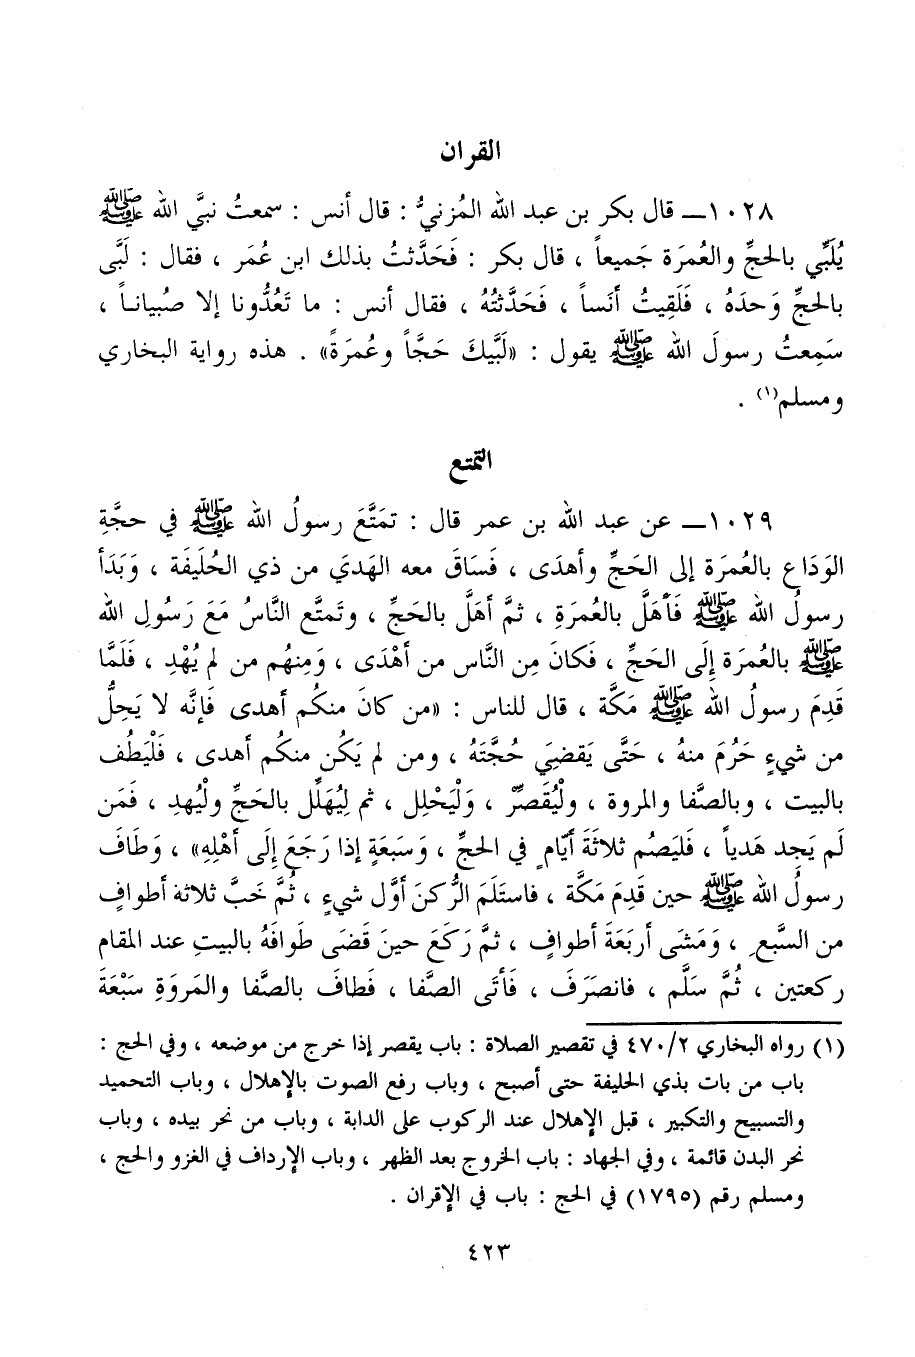 القران
١٠٢٨ــ قال بكر بن عبد الله المُزنيُّ : قال أنس : سمعتُ نبيَّ الله ﷺ
يُلَبِّي بالحجِّ والعُمرَة جَميعاً ، قال بكر : فَحَدَّثتُ بذلك ابن عُمَر ، فقال : لَبَّى
بالحجِّ وَحدَهُ ، فَلَقِيتُ أنَساً ، فَحَدَّثتُهُ ، فقال أنس : ما تَعُدُّونا إلا صبياناً ،
سَمِعتُ رسولَ الله ﷺ يقول : «لَبَّيكَ حَجَّاً وعُمرَةً» . هذه رواية البخاري
ومسلم(١) .
التمتع
١٠٢٩ــ عن عبد الله بن عمر قال : تمَتَّعَ رسولُ الله ﷺ في حجَّةِ
الوَدَاع بالعُمرَة إلى الحَجِّ وأهدَى ، فَسَاقَ معه الهَديَ من ذي الحُلَيفَة ، وَبَدَأ
رسولُ الله ﷺ فَأهَلَّ بالعُمرَةِ ، ثمَّ أهَلَّ بالحَجِّ ، وتَمتَّع النَّاسُ مَعَ رَسُولِ الله
ﷺ بالعُمرَة إِلَى الحَجِّ ، فَكانَ مِن النَّاس من أهْدَى ، وَمِنهُم من لم يُهْدِ ، فَلَمَّا
قَدِمَ رسولُ الله ﷺ مَكَّة ، قال للناس : «من كانَ منكُم أهدى فَإنَّه لا يَحِلُّ
من شيءٍ حَرُمَ منهُ ، حَتَّى يَقضِيَ حُجَّتَهُ ، ومن لم يَكُن منكُم أهدى ، فَلْيَطُف
بالبيت ، وبالصَّفا والمروة ، ولْيُقَصِّرْ ، وَلْيَحْلِل ، ثم لِيُهَلِّل بالحَجِّ ولْيُهدِ ، فَمَن
لَم يَجِد هَدياً ، فَليَصُم ثلاثَةَ أيّامٍ في الحجِّ ، وَسَبعَةٍ إذا رَجَعَ إِلَى أهْلِهِ» ، وَطَافَ
رسولُ الله ﷺ حين قَدِمَ مَكَّة ، فاستَلَمَ الرُّكنَ أوَّل شيءٍ ، ثُمَّ خَبَّ ثلاثة أطوافٍ
من السَّبعِ ، وَمَشَى أربَعَةَ أطوافٍ ، ثمَّ رَكَعَ حينَ قَضَى طَوافَهُ بالبيتِ عند المقام
ركعتين ، ثُمَّ سَلَّم ، فانصَرَفَ ، فَأتَى الصَّفا ، فَطافَ بالصَّفا والمَروَةِ سَبْعَةَ
(١) رواه البخاري ٤٧٠/٢ في تقصير الصلاة : باب يقصر إذا خرج من موضعه ، وفي الحج :
باب من بات بذي الحليفة حتى أصبح ، وباب رفع الصوت بالإهلال ، وباب التحميد
والتسبيح والتكبير ، قبل الإهلال عند الركوب على الدابة ، وباب من نحر بيده ، وباب
نحر البدن قائمة ، وفي الجهاد : باب الخروج بعد الظهر ، وباب الإرداف في الغزو والحج ،
ومسلم رقم (١٧٩٥) في الحج : باب في الإقران .
٤٢٣